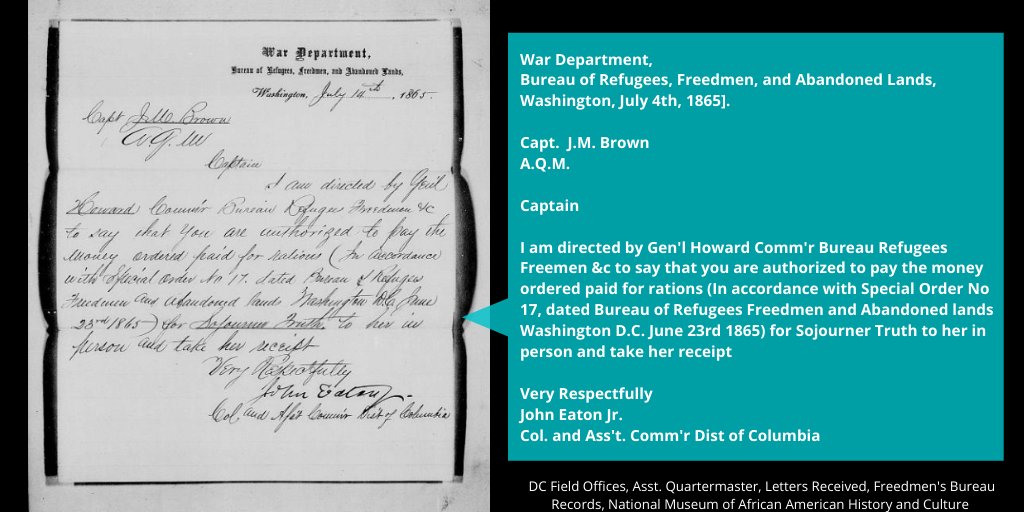 War Department,
Bureau of Refugees, Freedmen, and Abandoned Lands,
Washington, July 14th, 1865.
Capt J.M. Brown
A.Q.M
Captain
I am directed by Gen'l
Howard Comm'r Bureau Refugees Freedmen &c
to say that You are authorized to pay the
Money ordered paid for rations (In accordance
with Special Order No 17. dated Bureau of Refugees
Freedmen and Abandoned lands Washington D.C. June
23rd 1865) for Sojourner Truth, to her in
person and take her receipt
Very Respectfully
John Eaton Jr.
Col. and Ass't Comm'r Dist of Columbia
War Department,
Bureau of Refugees, Freedmen, and Abandoned Lands,
Washington, July 4th, 1865].
Capt.  J.M. Brown
A.Q.M.
Captain
I am directed by Gen'l Howard Comm'r Bureau Refugees
Freemen &c to say that you are authorized to pay the money
ordered paid for rations (In accordance with Special Order No
17, dated Bureau of Refugees Freedmen and Abandoned lands
Washington D.C. June 23rd 1865) for Sojourner Truth to her in
person and take her receipt
Very Respectfully
John Eaton Jr.
Col. and Ass't. Comm'r Dist of Columbia
DC Field Offices, Asst. Quartermaster, Letters Received, Freedmen's Bureau
Records, National Museum of African American History and Culture